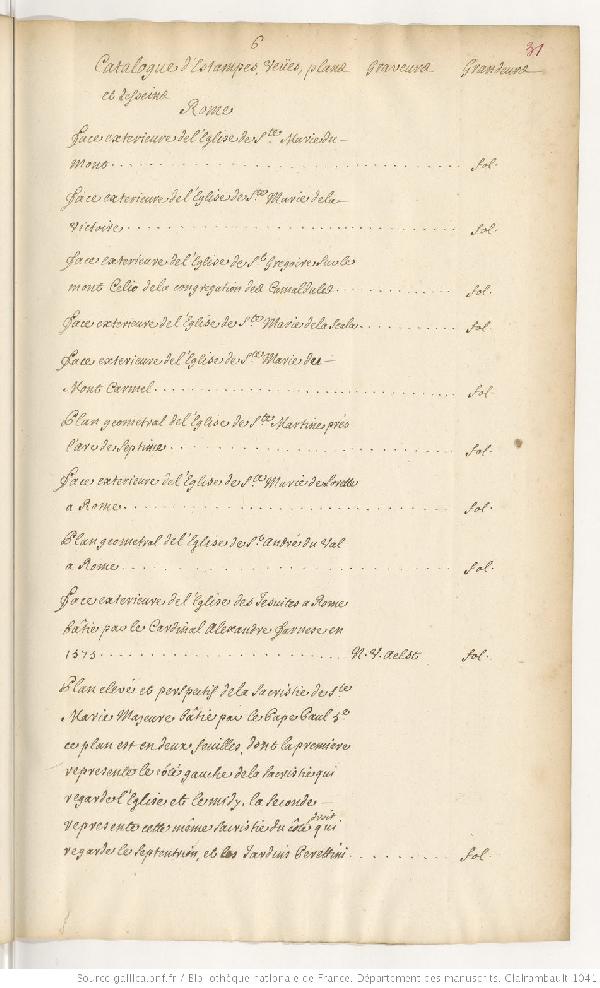 6
31
Catalogue d'Estampes, Veües, plans Graveurs Grandeurs
et desseins
Rome
Face exterieure de l'Eglise de Ste Marie du
Mont fol.
Face exterieure de l'Eglise de Ste Marie de la
Victoire fol.
Face exterieure de l'Eglise de St Gregoire sur le
mont Celio de la congregation des Camaldules fol.
Face exterieure de l'Eglise de Ste Marie de la Scala fol.
Face exterieure de l'Eglise de Ste Marie du
Mont Carmel fol.
Plan geometral de l'Eglise de Ste Martine prés
l'arc de Septime fol.
Face exterieure de l'Eglise de Ste Marie de Lorette
a Rome fol.
Plan geometral de l'Eglise de St André du Val
a Rome fol.
Face exterieure de l'Eglise des Jesuites a Rome
bâtie par le Cardinal Alexandre Farnese en
1575 N. V. aelst fol.
Plan elevé et perspectif de la Sacristie de Ste
Marie Majeure bâtie par le Pape Paul 5e
ce plan est en deux feuilles, dont la premiere
represente le côté gauche de la sacristie qui
regarde l'Eglise et le midy, la seconde
represente cette même sacristie du côté droit qui
regarde le septentrion, et les Jardins Perettini fol.
Source gallica.bnf.fr / Bibliothèque nationale de France. Département des manuscrits. Clairambault 1041